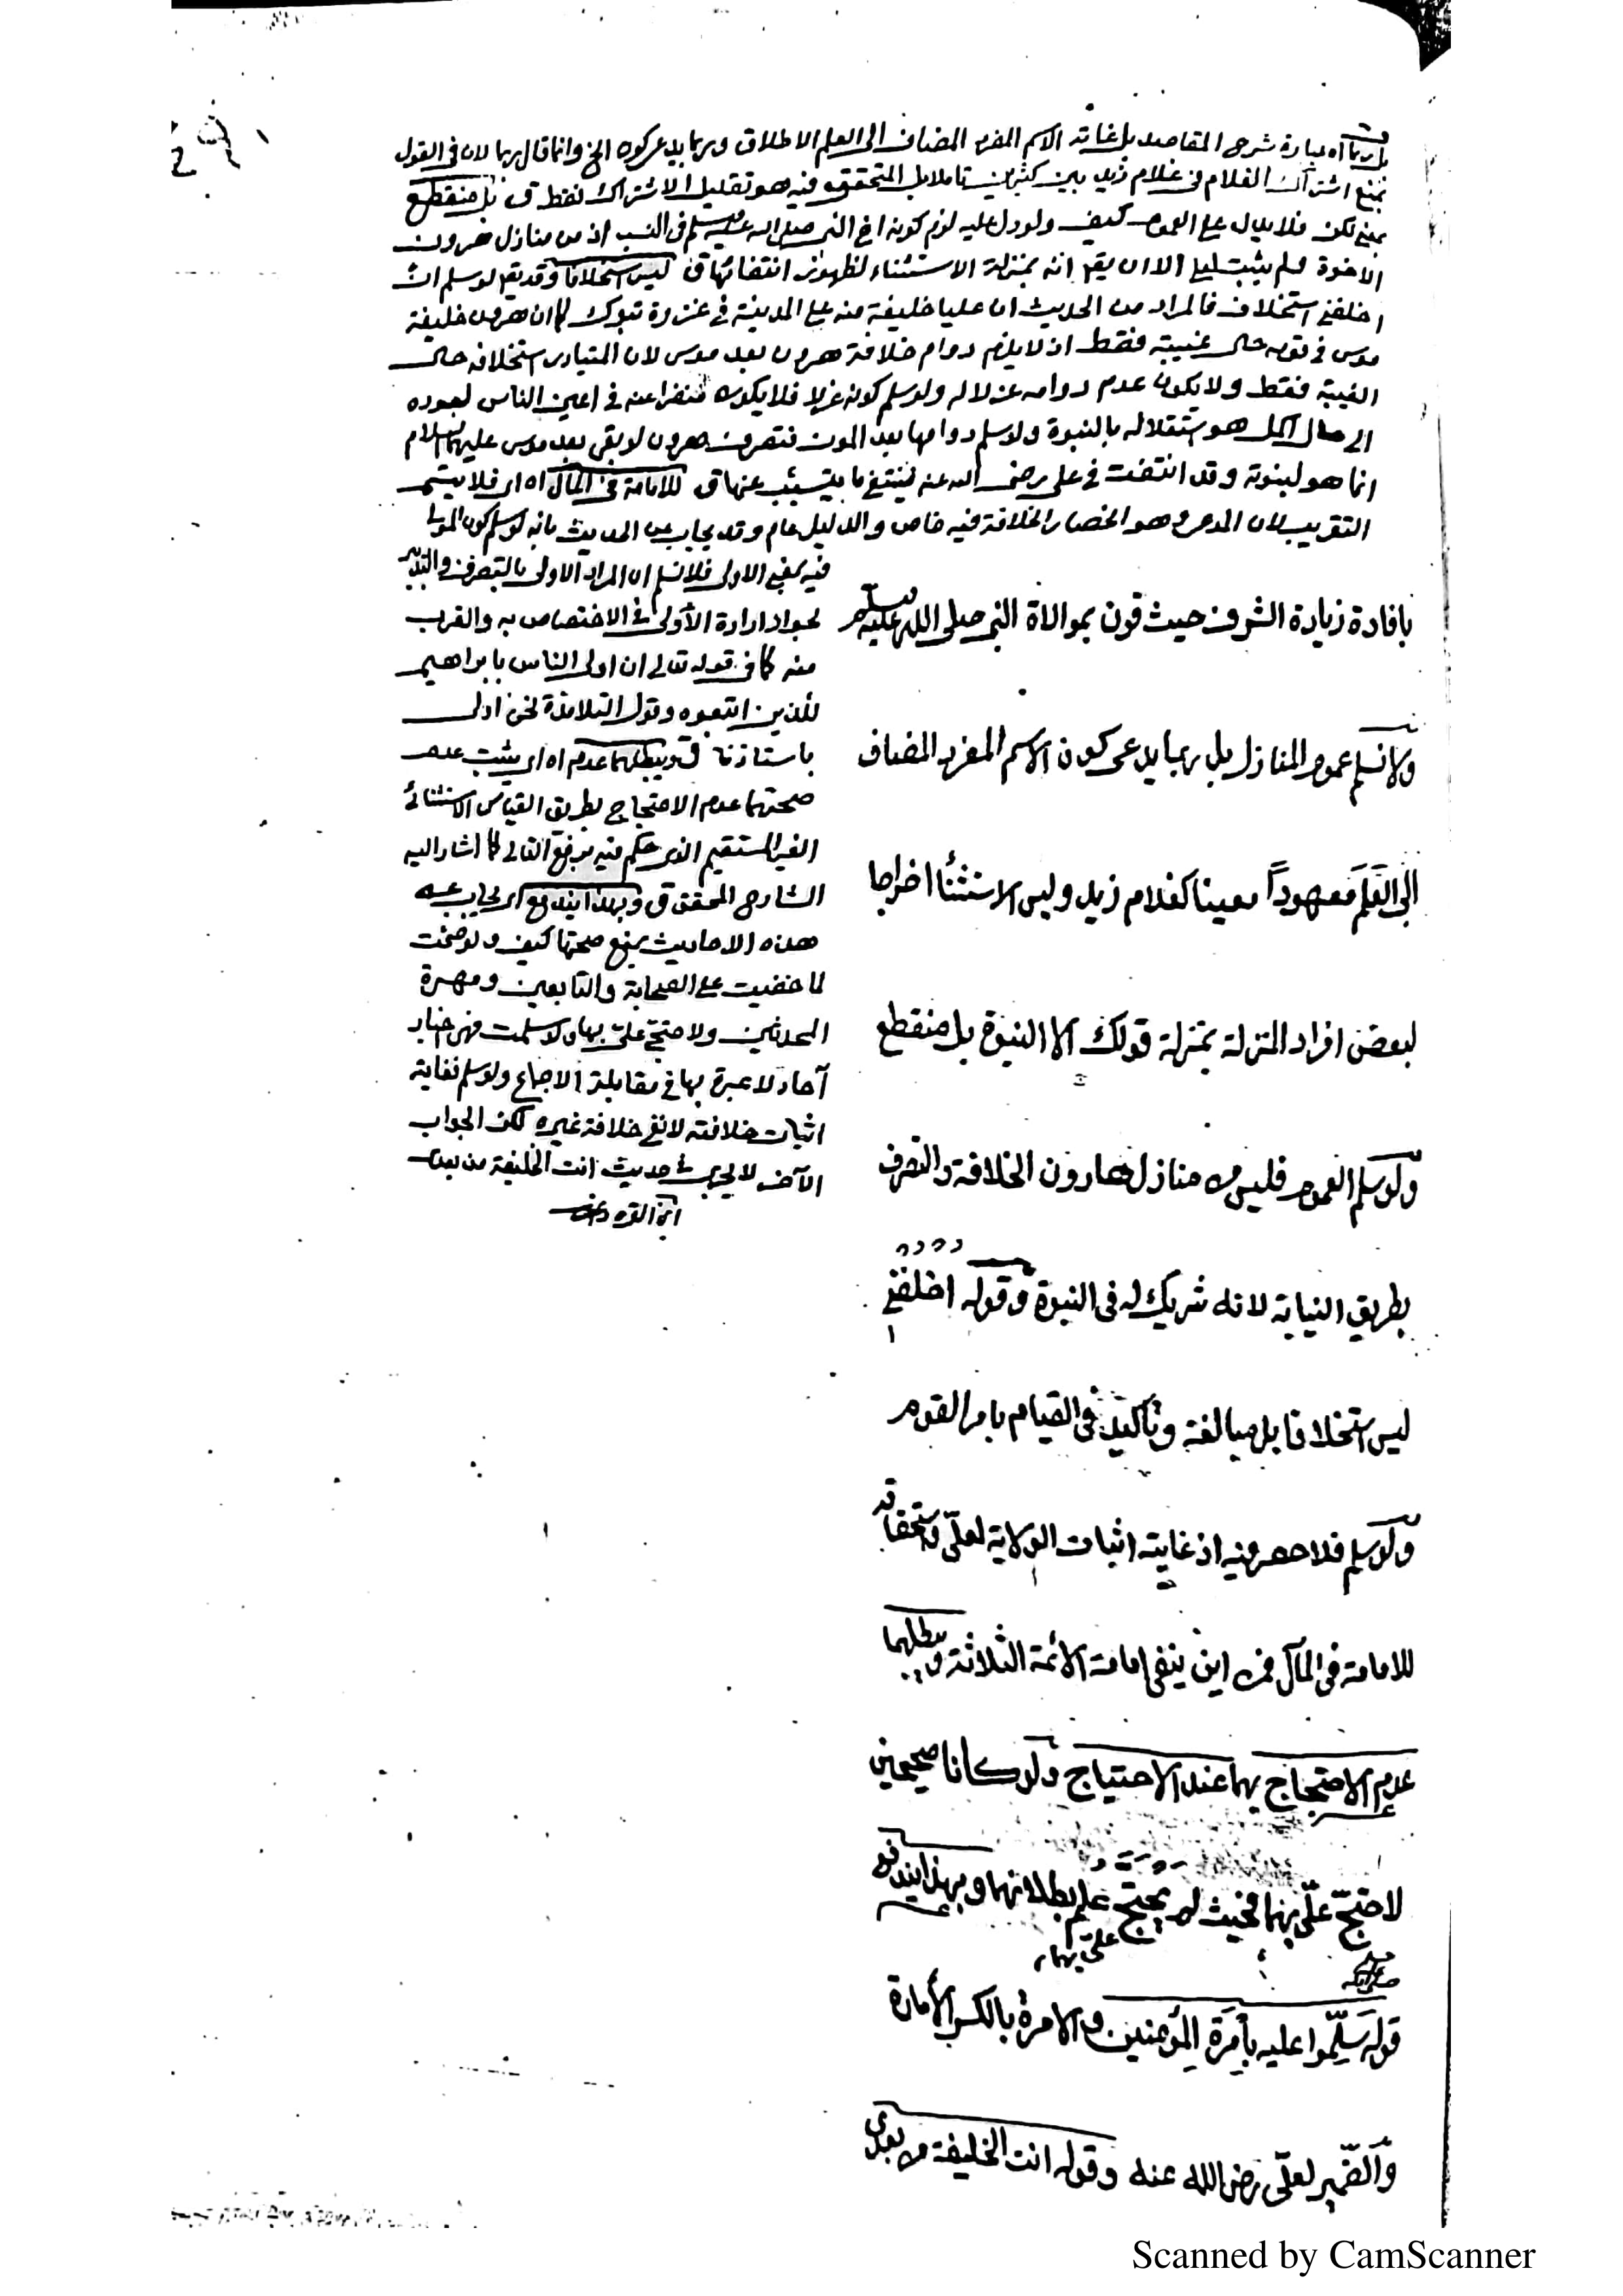 بل ربما اه عبارة شرح المقاصد بل غايته الاسم المفرد المضاف الى العلم الاطلاق وربما يدعى كونه الخ وانما قال ربما لان في القول
بمنع اشتراك الغلام في غلام زيد بين كثيرين تاملا بل المتحقق فيه هو تقليل الاشتراك فقط ق بل منقطع
بمعنى لكن فلا يدل على العموم كيف ولو دل عليه لزم كونه اخ النبي صلى الله عليه وسلم في النسب اذ من منازل هرون
الاخوة ولم يثبت لعلي الا ان يقم انه بمنزلة الاستثناء لظهور انتفائها ق ليس استخلافا وقد يقم لو سلم ان
اخلفني استخلاف فالمراد من الحديث ان عليا خليفة منه على المدينة في غزوة تبوك كما ان هرون خليفة
موسى في قومه حال غيبته فقط اذ لا يلزم دوام خلافة هرون بعد موسى لان المتبادر استخلافه حال
الغيبة فقط ولا يكون عدم دوامه عزلا له ولو سلم كونه عزلا فلا يكون منفرا عنه في اعين الناس لعوده
الى حال اكمل هو استقلاله بالنبوة ولو سلم دوامها بعد الموت فتصرف هرون لو بقي بعد موسى عليهما السلام
انما هو لنبوته وقد انتفت في علي رضي الله عنه فينتفي ما يتسبب عنها ق للامامة في المآل اه اي فلا يتم
التقريب لان المدعى وهو انحصار الخلافة فيه خاص والدليل عام وقد يجاب عن الحديث بانه لو سلم كون المولى
فيه بمعنى الاولى فلا نسلم ان المراد الاولى بالتصرف والتدبير
لجواز ارادة الأولى في الاختصاص به والقرب
منه كما في قوله تعالى ان اولى الناس بابراهيم
للذين اتبعوه وقول التلامذة نحن اولى
باستاذنا ق ويبطلهما عدم اه اي يثبت عدم
صحتهما عدم الاحتجاج بطريق القياس الاستثنائي
الغير المستقيم الذي حكم فيه برفع التالي كما اشار اليه
الشارح المحقق ق وبهذا يندفع اي يجاب عن
هذه الاحاديث بمنع صحتها كيف ولو صحت
لما خفيت على الصحابة والتابعين ومهرة
المحدثين ولاحتج علي بها ولو سلمت فهي اخبار
آحاد لا عبرة بها في مقابلة الاجماع ولو سلم فغايته
اثبات خلافته لا نفي خلافة غيره لكن الجواب
الآخر لا يجري في حديث انت الخليفة من بعدي
ابن القره داغي
بافادة زيادة الشرف حيث قرن بموالاة النبي صلى الله عليه وسلم
ولا نسلم عموم المنازل بل ربما يدعى كون الاسم المفرد المضاف
الى العَلَم معهوداً معينا كغلام زيد وليس الاستثنأ اخراجا
لبعض افراد المنزلة بمنزلة قولك الا النبوة بل منقطع
ولو سلم العموم فليس من منازل هارون الخلافة والتصرف
بطريق النيابة لانه شريك له في النبوة وقوله اخلفني
ليس استخلافا بل مبالغة وتأكيد في القيام بامر القوم
ولو سلم فلا حصر فيه اذ غايته اثبات الولاية لعليّ واستحقاقه
للامامة في المآل فمن اين ينفى امامة الأئمة الثلاثة ويبطلهما
عدم الاحتجاج بهما عند الاحتياج ولو كانا صحيحين
لاحتجّ عليّ بهما فحيث لم يحتجّ علم بطلانهما وبهذا يندفع
عليّ بهما
صلى الله عليه وسلم
قوله سَلِّموا عليه بأِمرَةِ المؤمنين والامرة بالكسر الأمارة
والضّمير لعليّ رضي الله عنه وقوله انت الخليفة من بعدي
Scanned by CamScanner